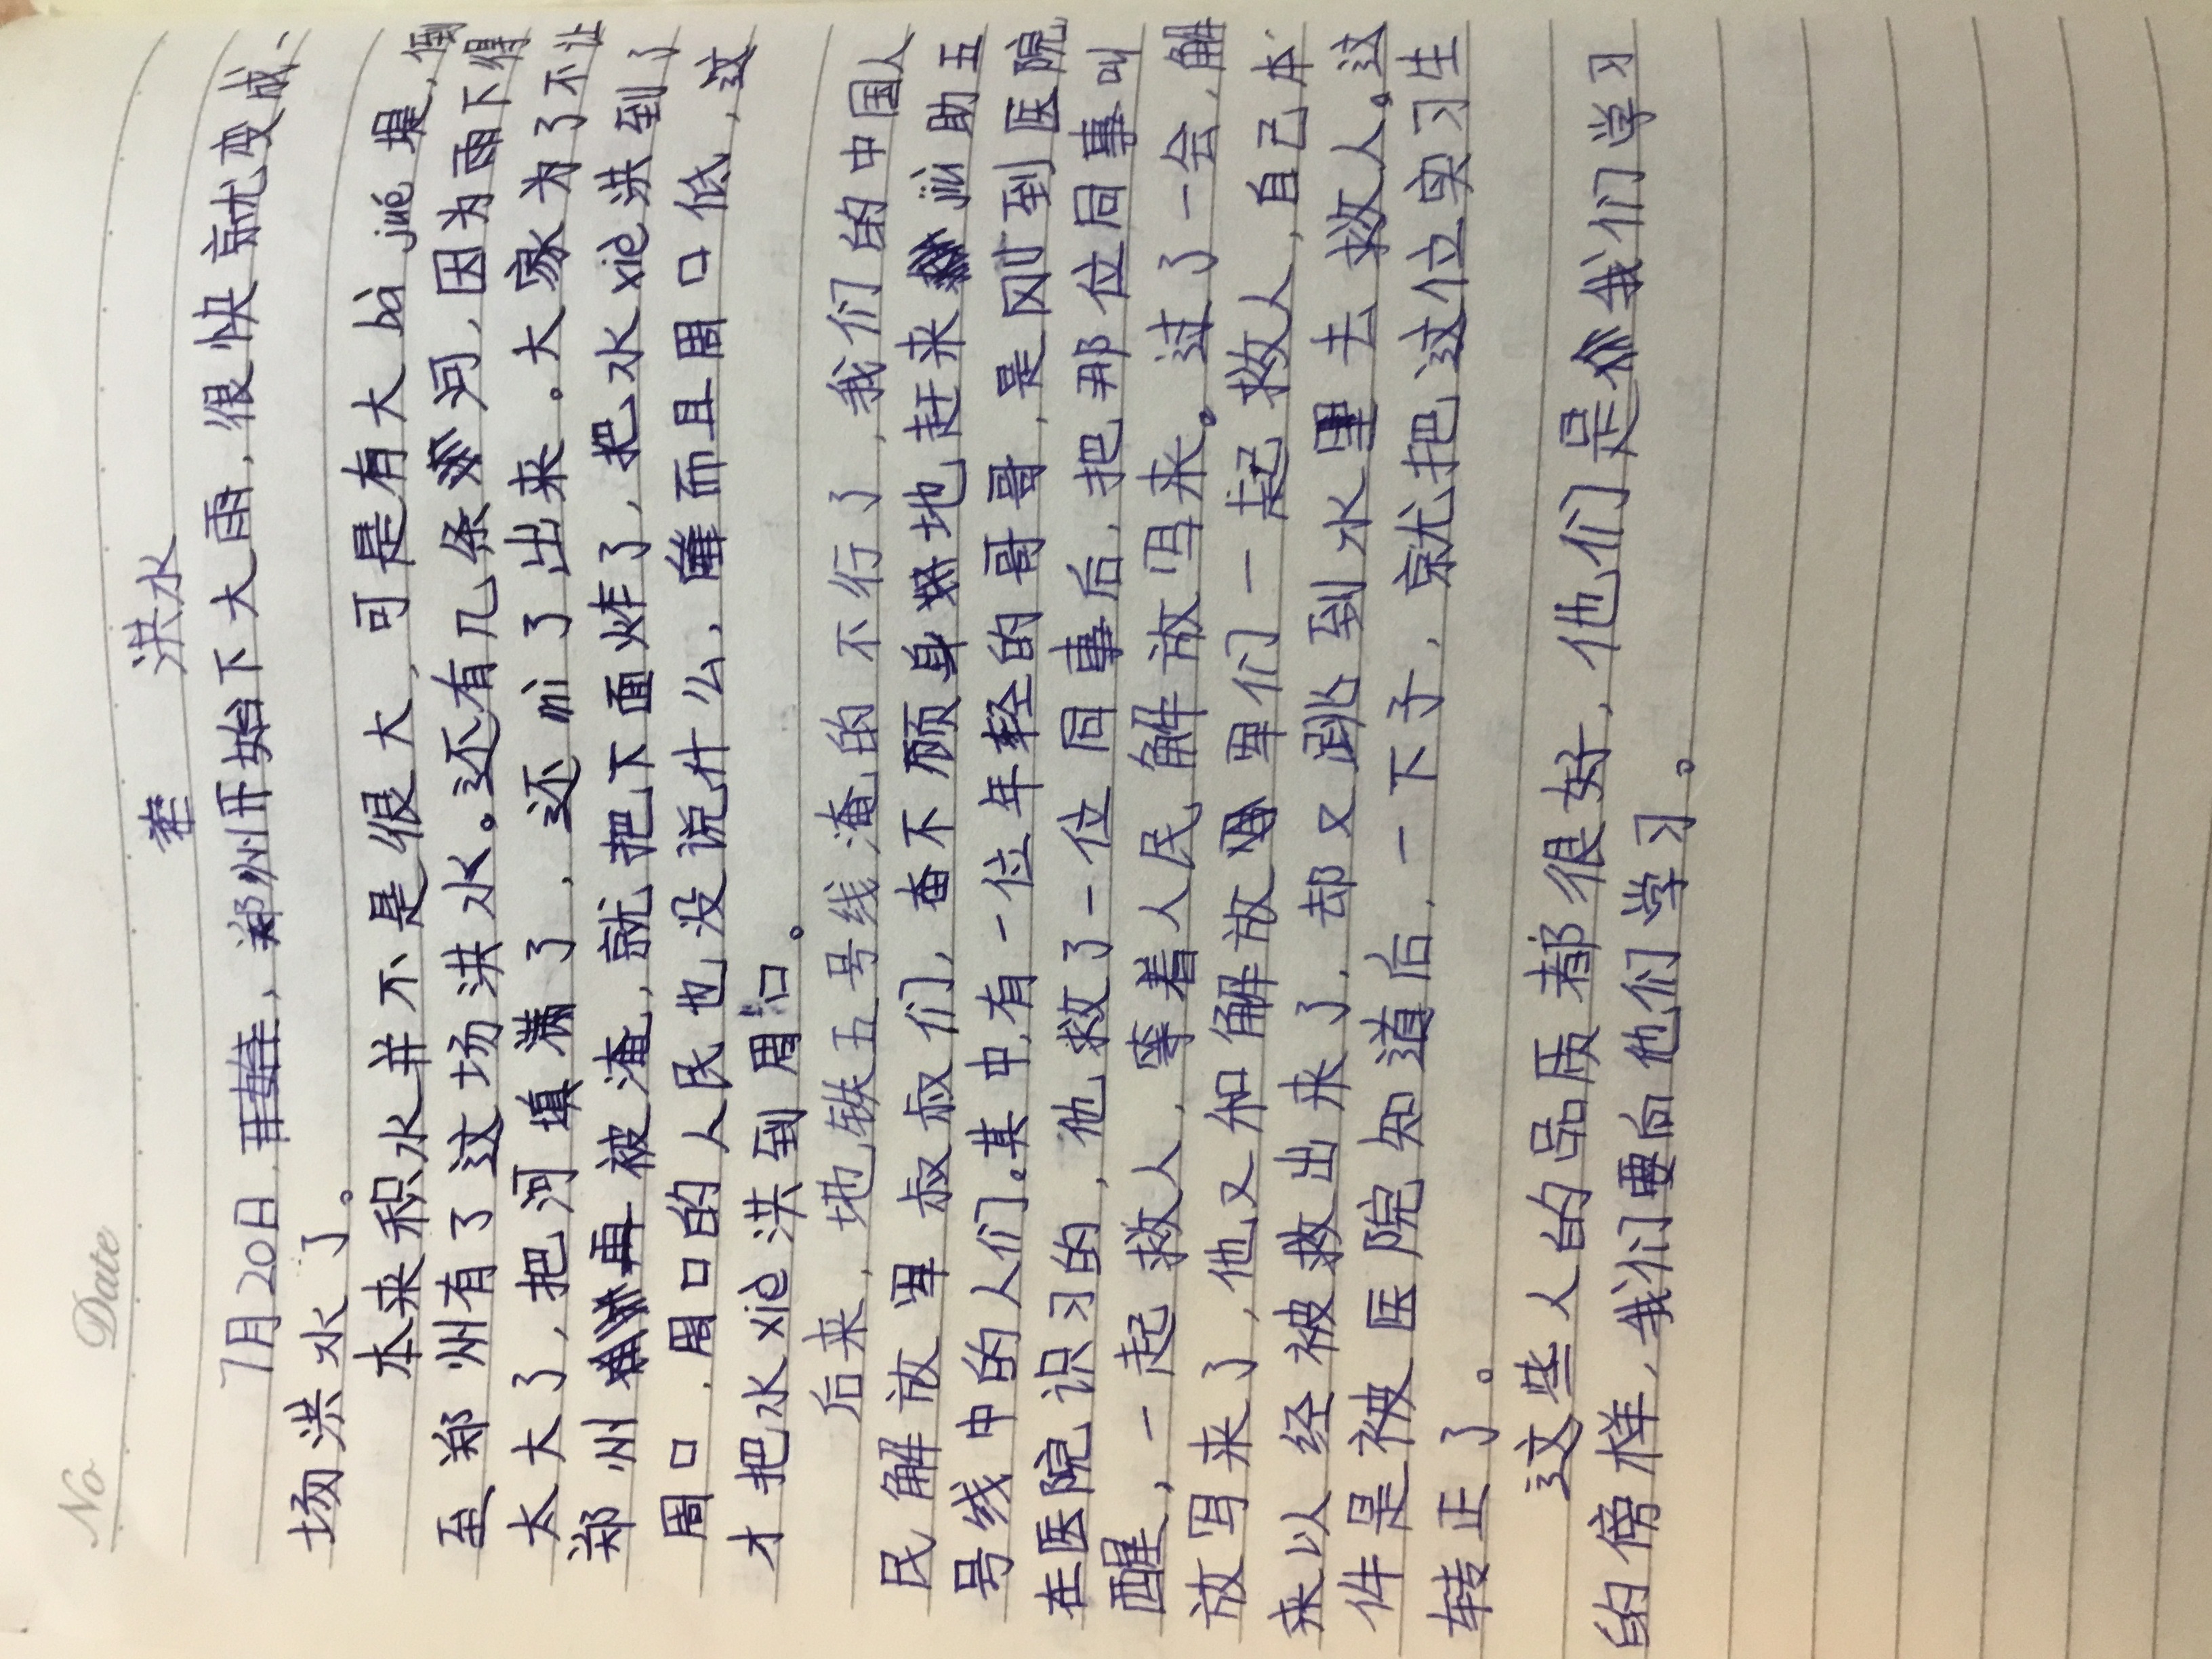 No Date
洪水
7月20日,郑州开始下大雨,很快就变成一
场洪水了。
本来积水并不是很大,可是有大bà jué堤,倒
至郑州有了这场洪水。还有几条河,因为雨下得
太大了,把河填满了,还mì了出来。大家为了不让
郑州再被淹,就把下面炸了,把水xiè洪到了
周口,周口的人民也没说什么,而且周口低,这
才把水xiè洪到周口。
后来,地铁五号线淹的不行了,我们的中国人
民解放军叔叔们,奋不顾身地赶来jiù助五
号线中的人们。其中,有一位年轻的哥哥,是刚到医院
在医院识习的,他救了一位同事后,把那位同事叫
醒,一起救人,等着人民解放军来。过了一会,解
放军来了,他又和解放军们一起救人,自己本
来以经被救出来了,却又跳到水里去救人。这
件是被医院知道后,一下子,就把这位实习生
转正了。
这些人的品质都很好,他们是我们学习
的傍样,我们要向他们学习。